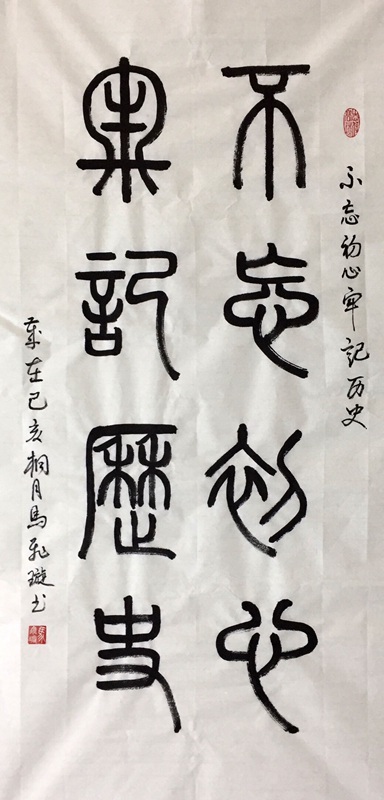 不忘初心牢記历史
不忘初心
牢記歷史
歲在己亥桐月馬璇书